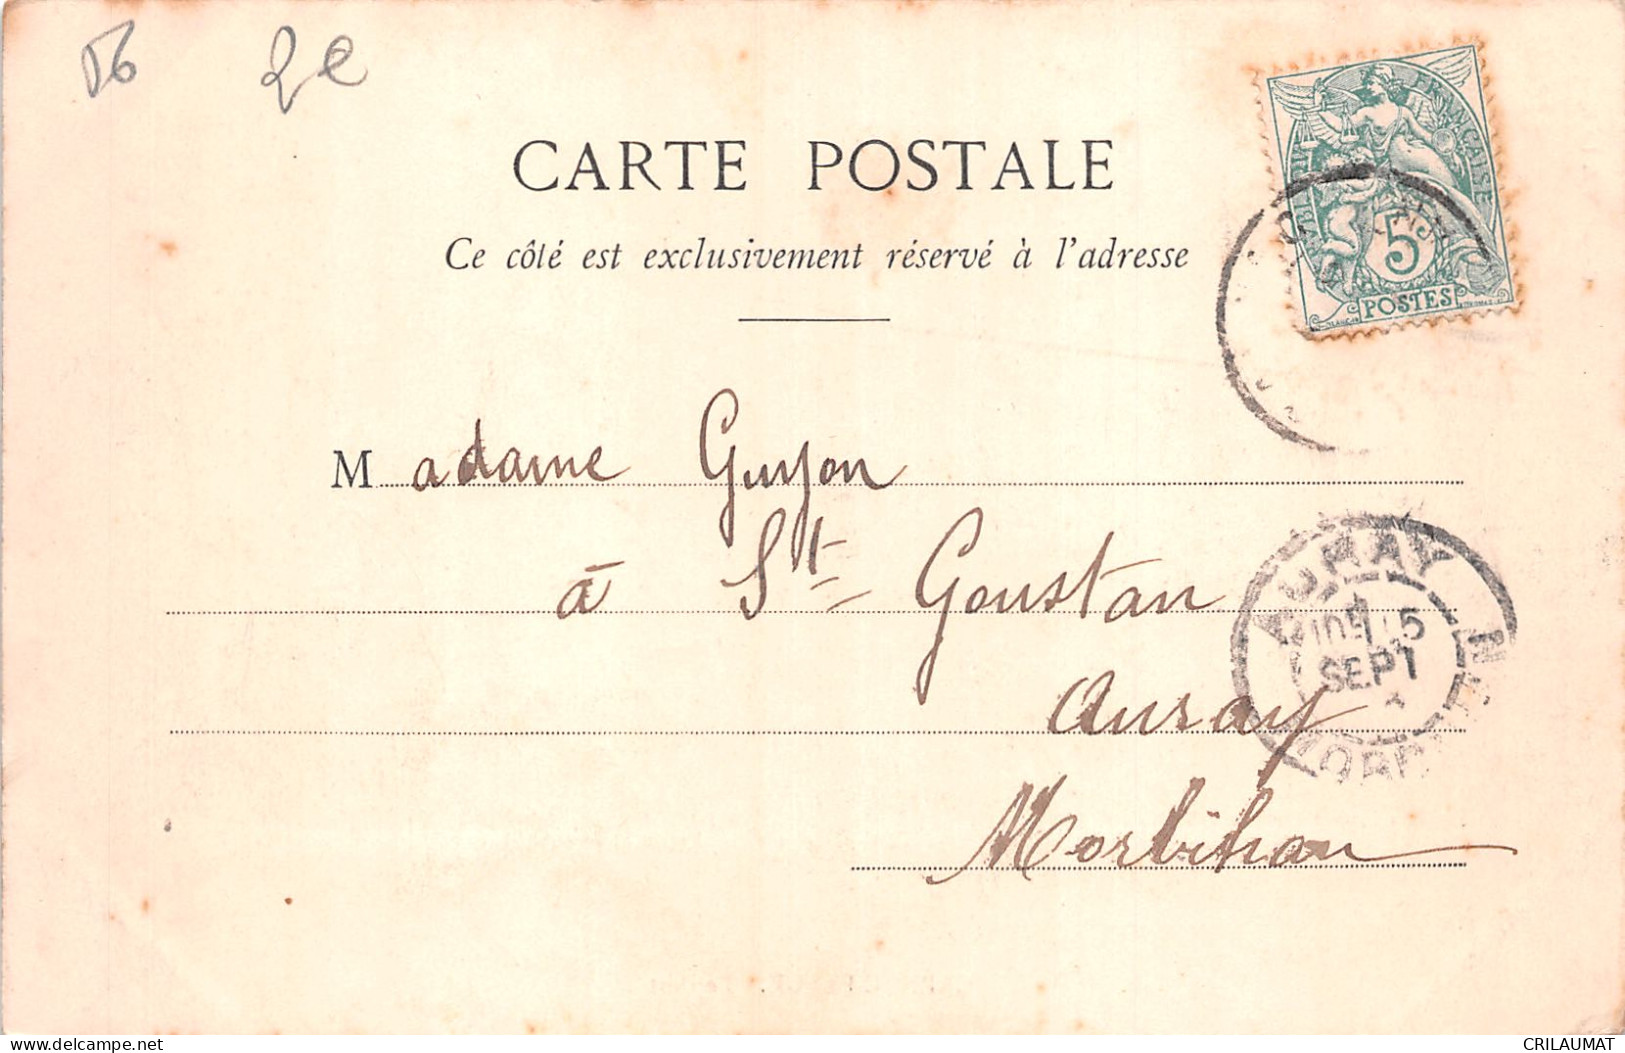 56
2e
CARTE POSTALE
Ce côté est exclusivement réservé à l'adresse
RÉPUBLIQUE FRANÇAISE
5
POSTES
Madame Guyon
à St Goustan
Auray
Morbihan
AURAY
5
SEPT
MORBIHAN
delcampe.net
CRILAUMAT